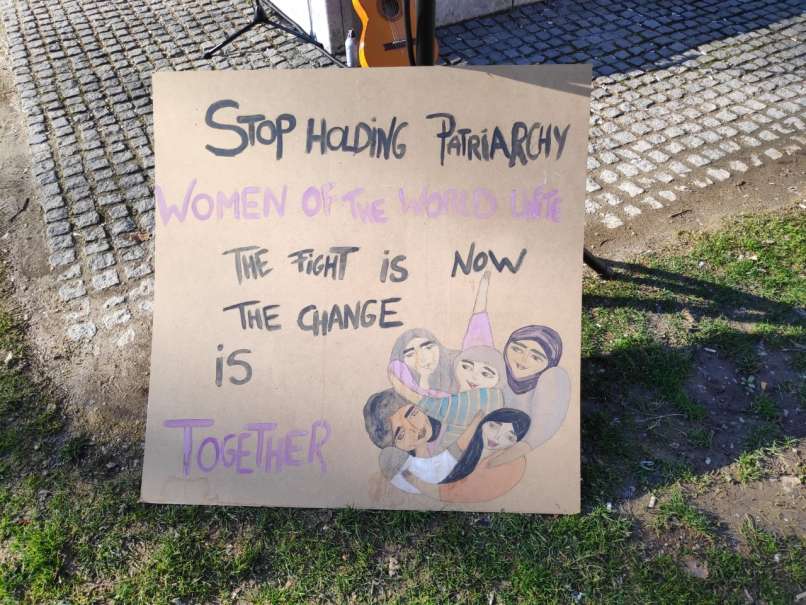 STOP HOLDING PATRIARCHY
WOMEN OF THE WORLD UNITE
THE FIGHT IS NOW
THE CHANGE
IS
TOGETHER